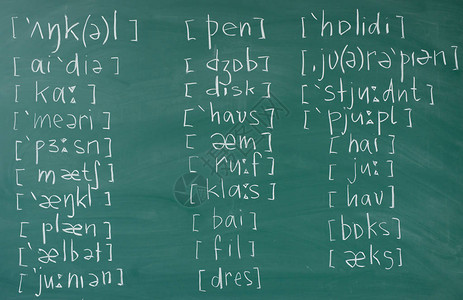 [ˋʌŋk(ə)l]
[aiˋdiə]
[kaː]
[ˋmeəri]
[ˋpɜːsn]
[mætʃ]
[ˋæŋkl]
[plæn]
[ˋælbət]
[ˋjuːniən]
[pen]
[dʒɒb]
[disk]
[ˋhaus]
[æm]
[ruːf]
[klaːs]
[bai]
[fil]
[dres]
[ˋhɒlidi]
[ˌju(ə)rəˋpiən]
[ˋstjuːdnt]
[ˋpjuːpl]
[hai]
[juː]
[hau]
[bɒks]
[æks]